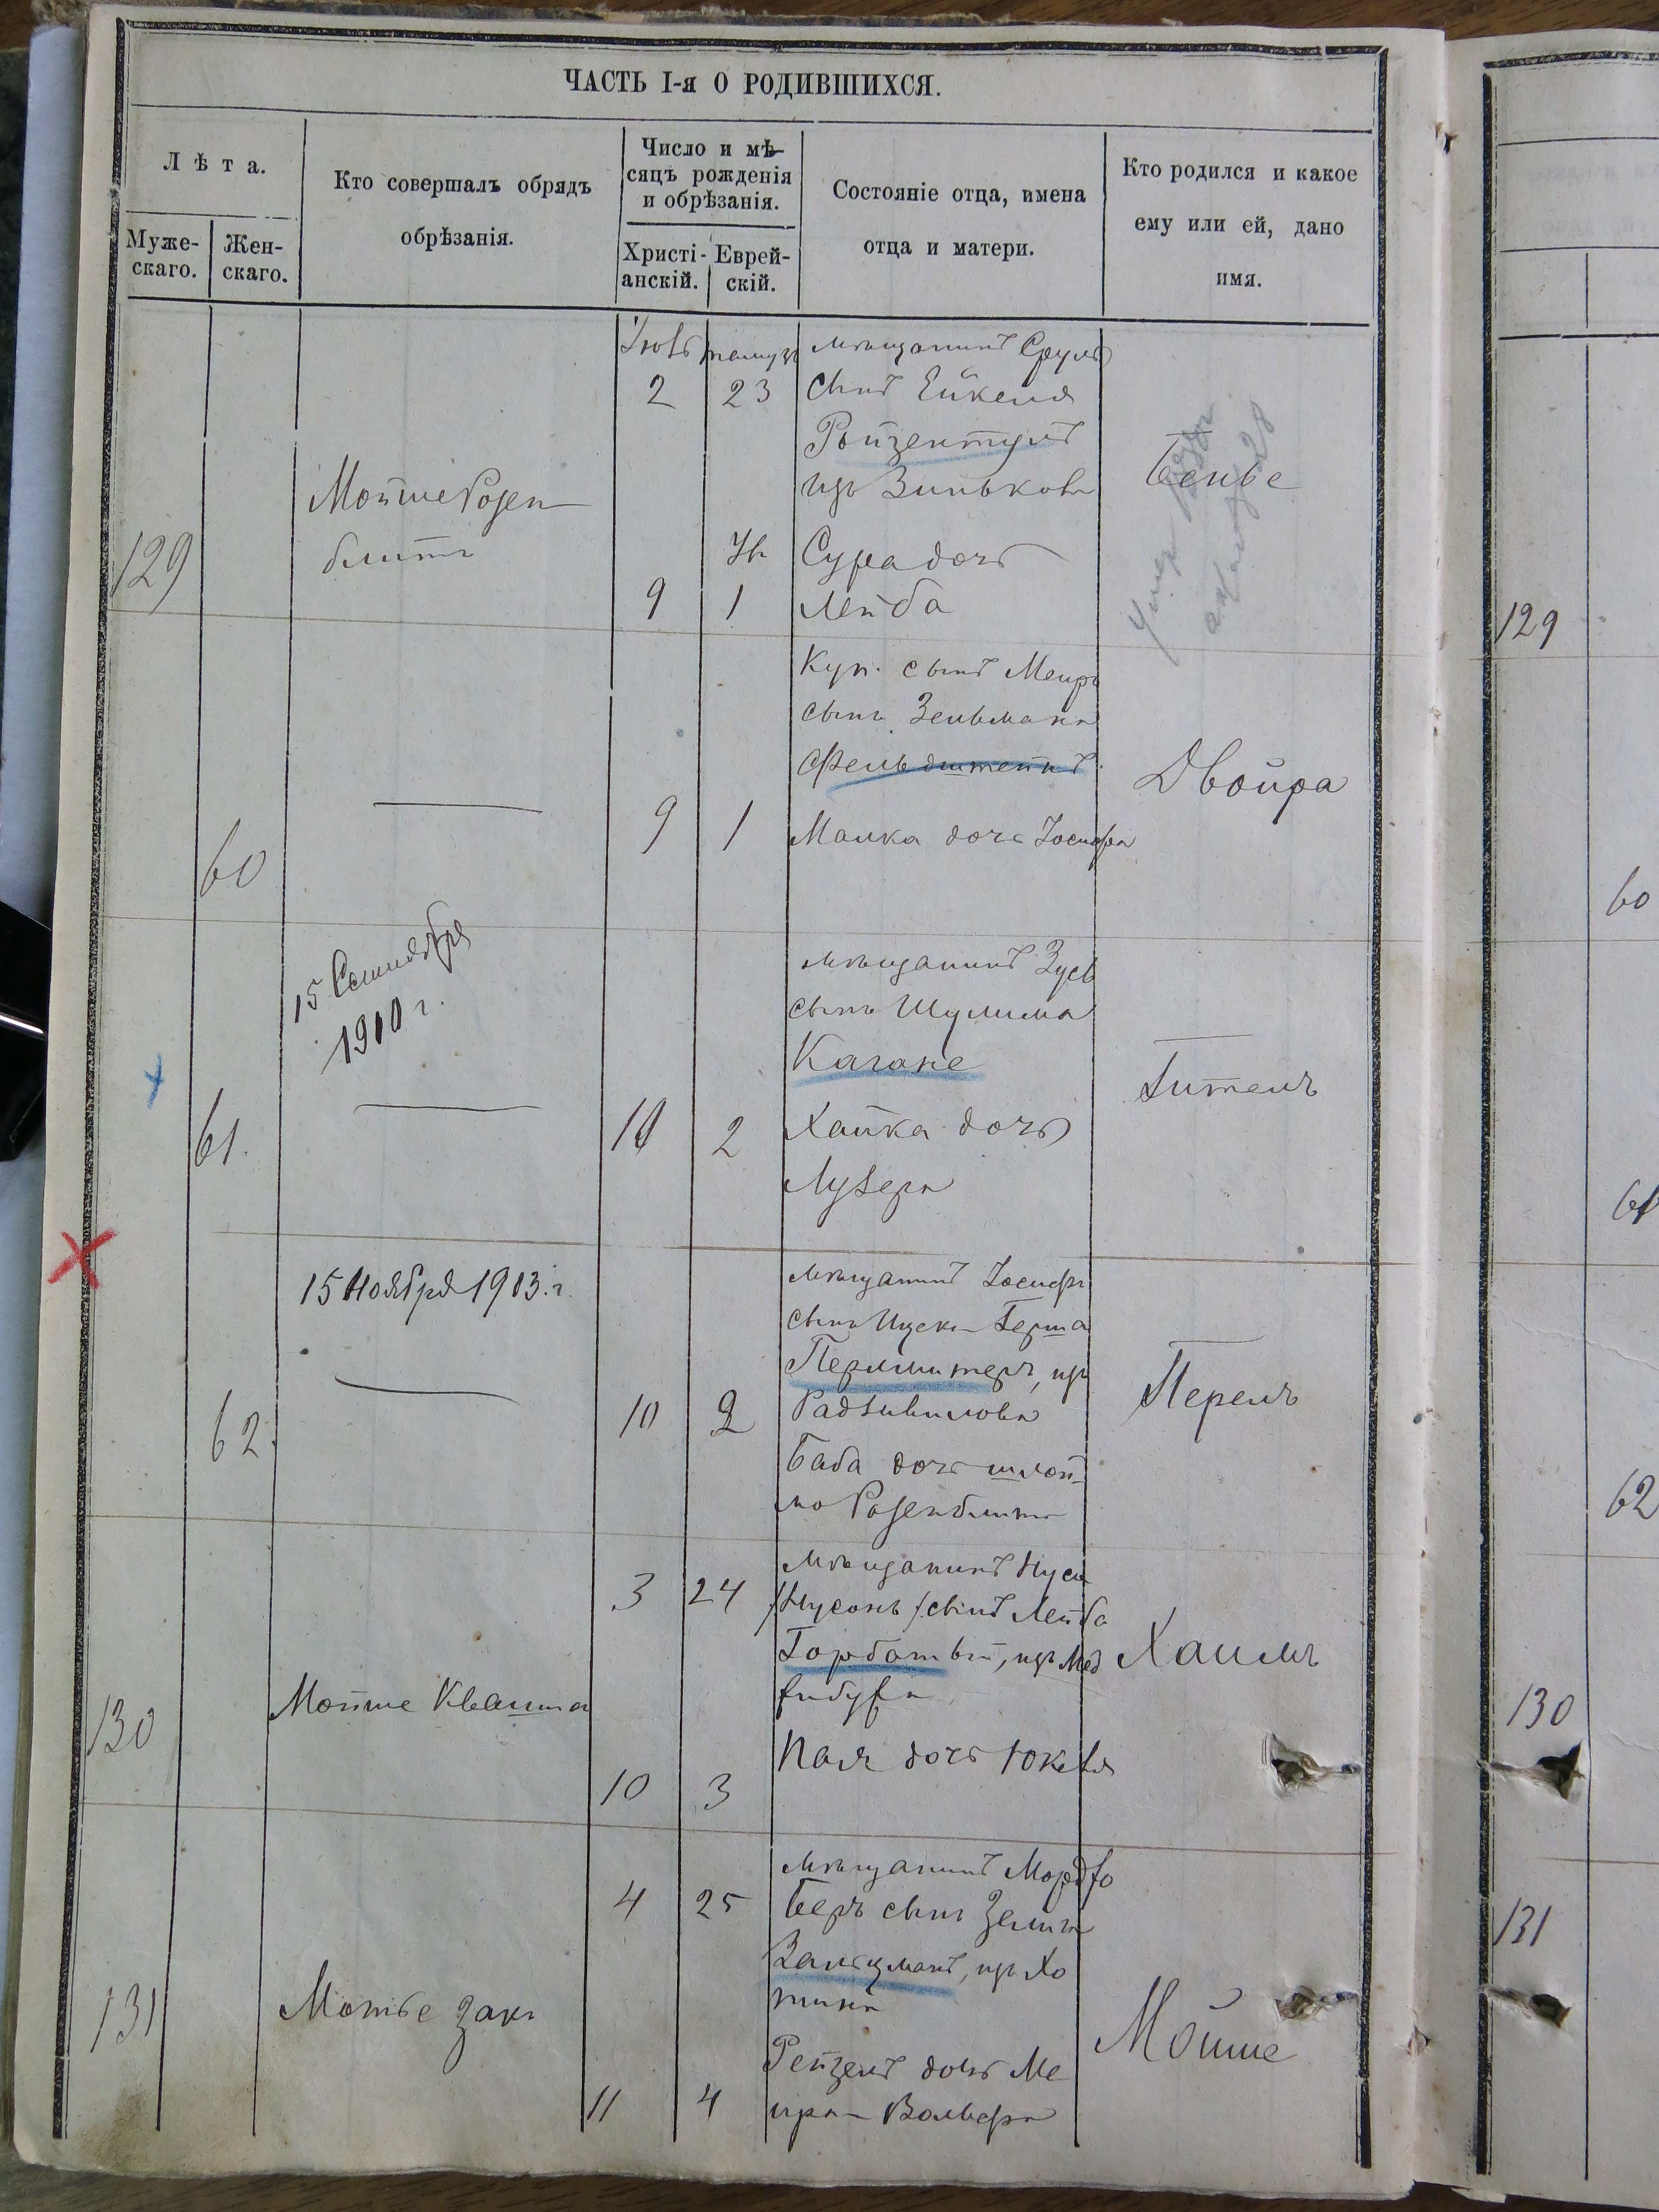 ЧАСТЬ I-я О РОДИВШИХСЯ.
Лѣта.
Муже-
скаго.
Жен-
скаго.
Кто совершалъ обрядъ
обрѣзанія.
Число и мѣ-
сяцъ рожденія
и обрѣзанія.
Христі-
анскій.
Еврей-
скій.
Состояніе отца, имена
отца и матери.
Кто родился и какое
ему или ей, дано
имя.
129
Мойше Розен
блитъ
2
23
9
1
мѣщанинъ Сруль
сынъ Ейкеля
Ройзентулъ
изъ Зинькова
Сура дочь
Лейба
Бенье
Умер
60
9
1
Куп. сынъ Меиръ
сынъ Зельмана
Фельдштейнъ
Малка дочь Іосифа
Двойра
15 Сентября
1910 г.
61.
10
2
мѣщанинъ Зусь
сынъ Шулима
Кагане
Хайка дочь
Лузера
Гитель
15 Ноября 1913. г.
62.
10
2
мѣщанинъ Іосифъ
сынъ Ицека Герша
Перлмитеръ, изъ
Радзивилова
Баба дочь Шлой-
мо Розенблита
Перель
130
Мойше Кваша
3
24
10
3
мѣщанинъ Нусн
/Нусонъ/ сынъ Лейба
Горбатый, изъ Мед
жибужа
Пая дочь Юкеля
Хаимъ
131
Мотье Закъ
4
25
11
4
мѣщанинъ Мордко
Беръ сынъ Зелига
Зальцманъ, изъ Хо
тина
Рейзель дочь Ме
ира-Вольфа
Мойше
129
60
61
62
130
131